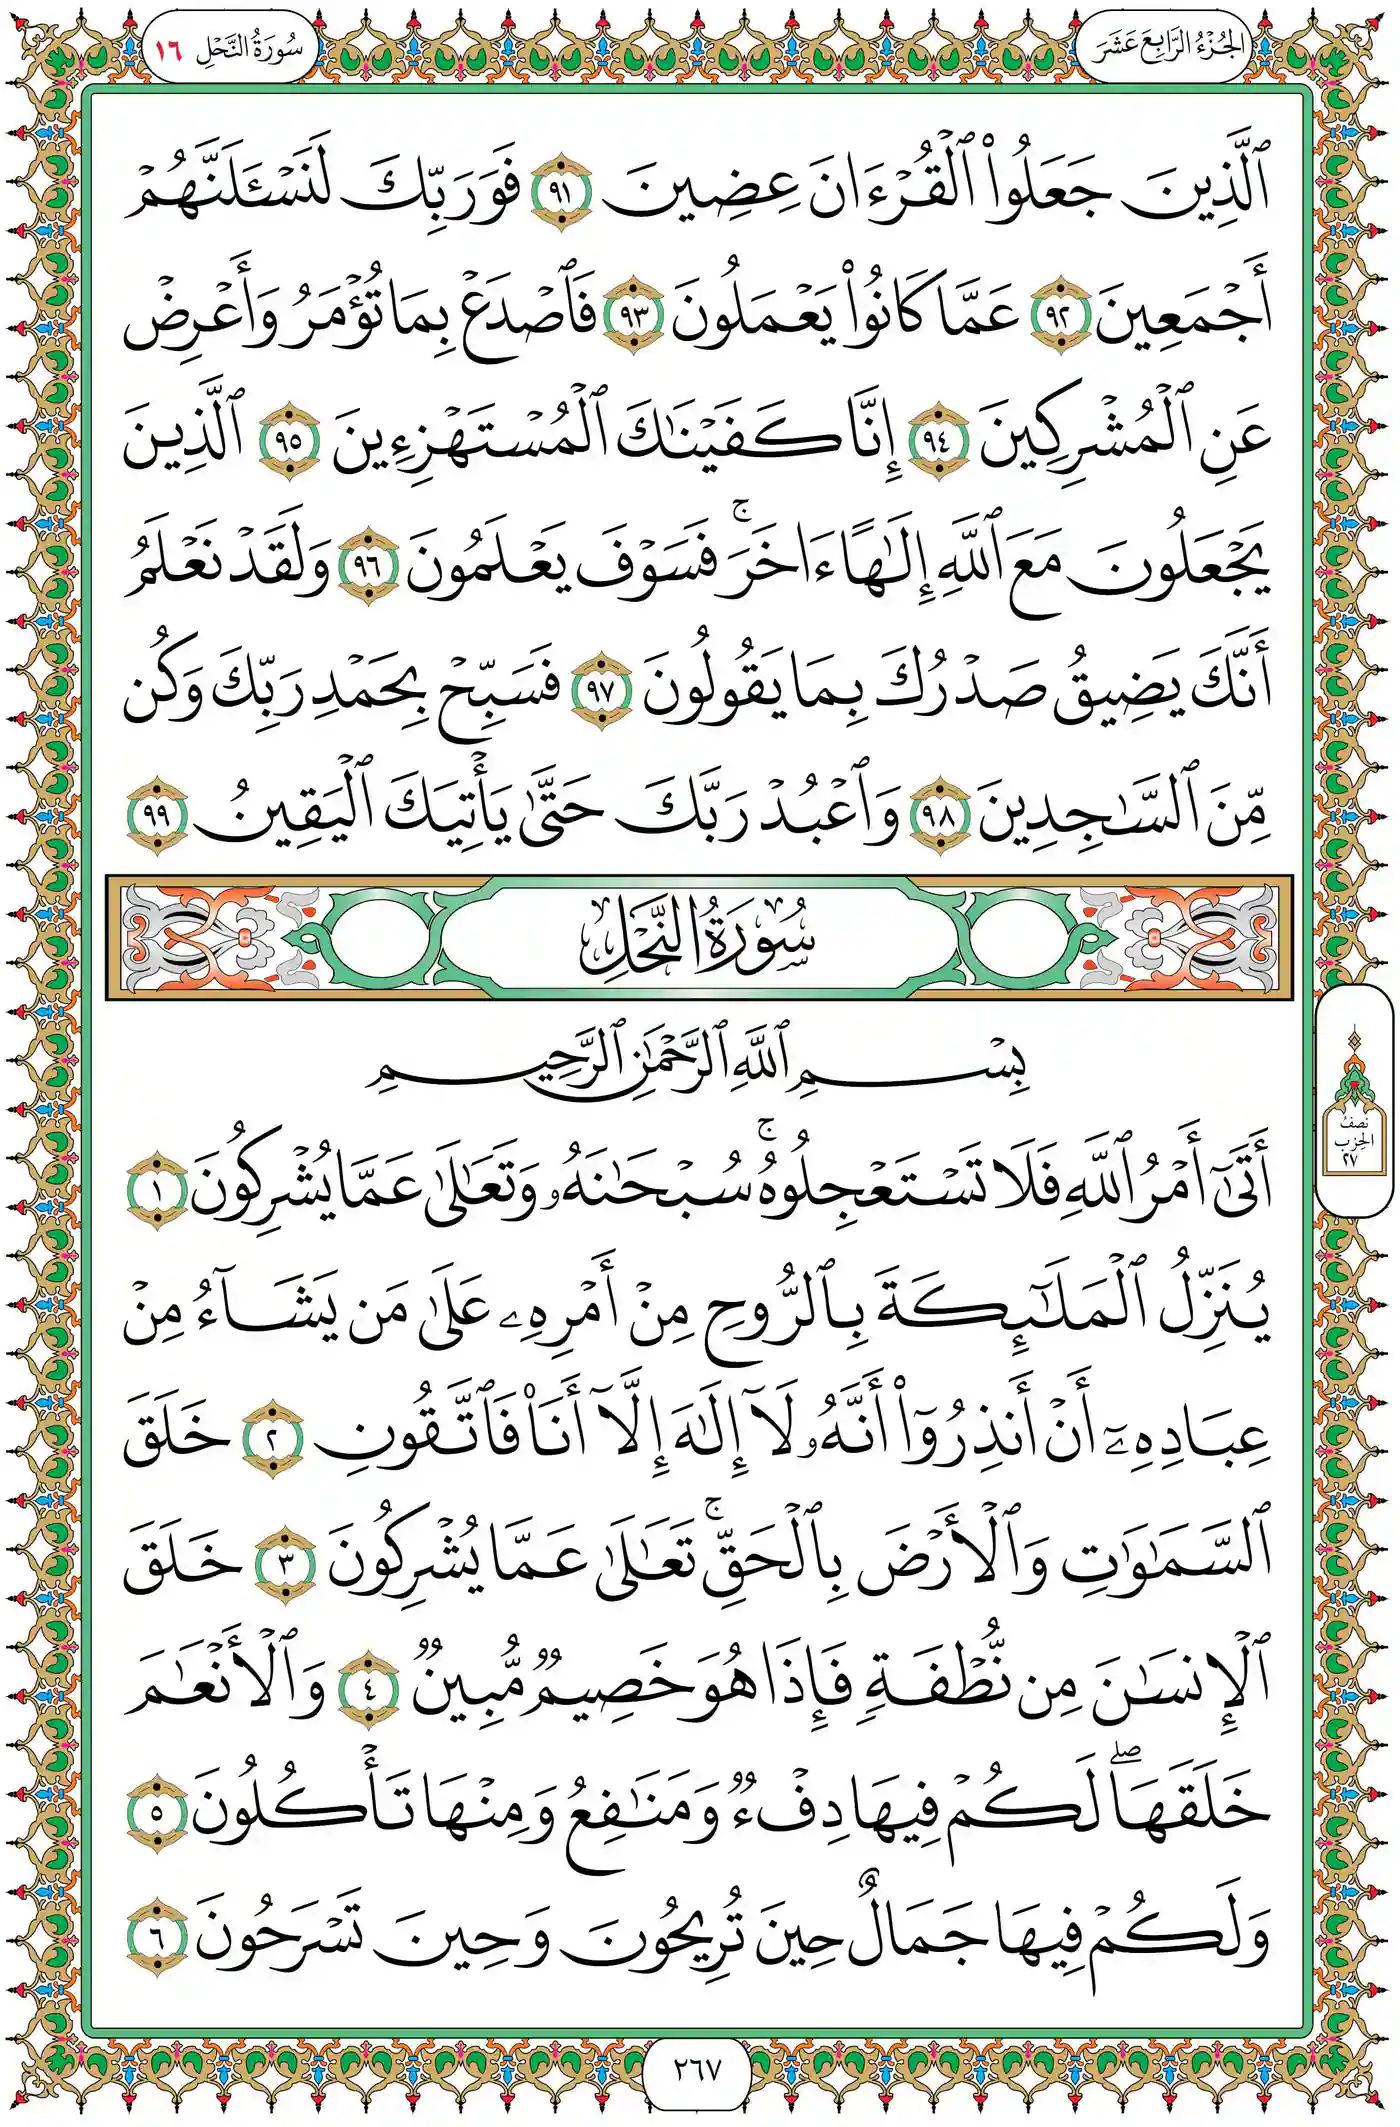 الجُزْءُ الرَّابِعَ عَشَرَ
سُورَةُ النَّحْلِ ١٦
ٱلَّذِينَ جَعَلُوا۟ ٱلْقُرْءَانَ عِضِينَ ٩١ فَوَرَبِّكَ لَنَسْـَٔلَنَّهُمْ
أَجْمَعِينَ ٩٢ عَمَّا كَانُوا۟ يَعْمَلُونَ ٩٣ فَٱصْدَعْ بِمَا تُؤْمَرُ وَأَعْرِضْ
عَنِ ٱلْمُشْرِكِينَ ٩٤ إِنَّا كَفَيْنَـٰكَ ٱلْمُسْتَهْزِءِينَ ٩٥ ٱلَّذِينَ
يَجْعَلُونَ مَعَ ٱللَّهِ إِلَـٰهًا ءَاخَرَ ۚ فَسَوْفَ يَعْلَمُونَ ٩٦ وَلَقَدْ نَعْلَمُ
أَنَّكَ يَضِيقُ صَدْرُكَ بِمَا يَقُولُونَ ٩٧ فَسَبِّحْ بِحَمْدِ رَبِّكَ وَكُن
مِّنَ ٱلسَّـٰجِدِينَ ٩٨ وَٱعْبُدْ رَبَّكَ حَتَّىٰ يَأْتِيَكَ ٱلْيَقِينُ ٩٩
سُورَةُ النَّحْلِ
بِسْمِ ٱللَّهِ ٱلرَّحْمَـٰنِ ٱلرَّحِيمِ
أَتَىٰٓ أَمْرُ ٱللَّهِ فَلَا تَسْتَعْجِلُوهُ ۚ سُبْحَـٰنَهُۥ وَتَعَـٰلَىٰ عَمَّا يُشْرِكُونَ ١
يُنَزِّلُ ٱلْمَلَـٰٓئِكَةَ بِٱلرُّوحِ مِنْ أَمْرِهِۦ عَلَىٰ مَن يَشَآءُ مِنْ
عِبَادِهِۦٓ أَنْ أَنذِرُوٓا۟ أَنَّهُۥ لَآ إِلَـٰهَ إِلَّآ أَنَا۠ فَٱتَّقُونِ ٢ خَلَقَ
ٱلسَّمَـٰوَٰتِ وَٱلْأَرْضَ بِٱلْحَقِّ ۚ تَعَـٰلَىٰ عَمَّا يُشْرِكُونَ ٣ خَلَقَ
ٱلْإِنسَـٰنَ مِن نُّطْفَةٍ فَإِذَا هُوَ خَصِيمٌ مُّبِينٌ ٤ وَٱلْأَنْعَـٰمَ
خَلَقَهَا ۖ لَكُمْ فِيهَا دِفْءٌ وَمَنَـٰفِعُ وَمِنْهَا تَأْكُلُونَ ٥
وَلَكُمْ فِيهَا جَمَالٌ حِينَ تُرِيحُونَ وَحِينَ تَسْرَحُونَ ٦
نصفُ
الحِزب
٢٧
٢٦٧